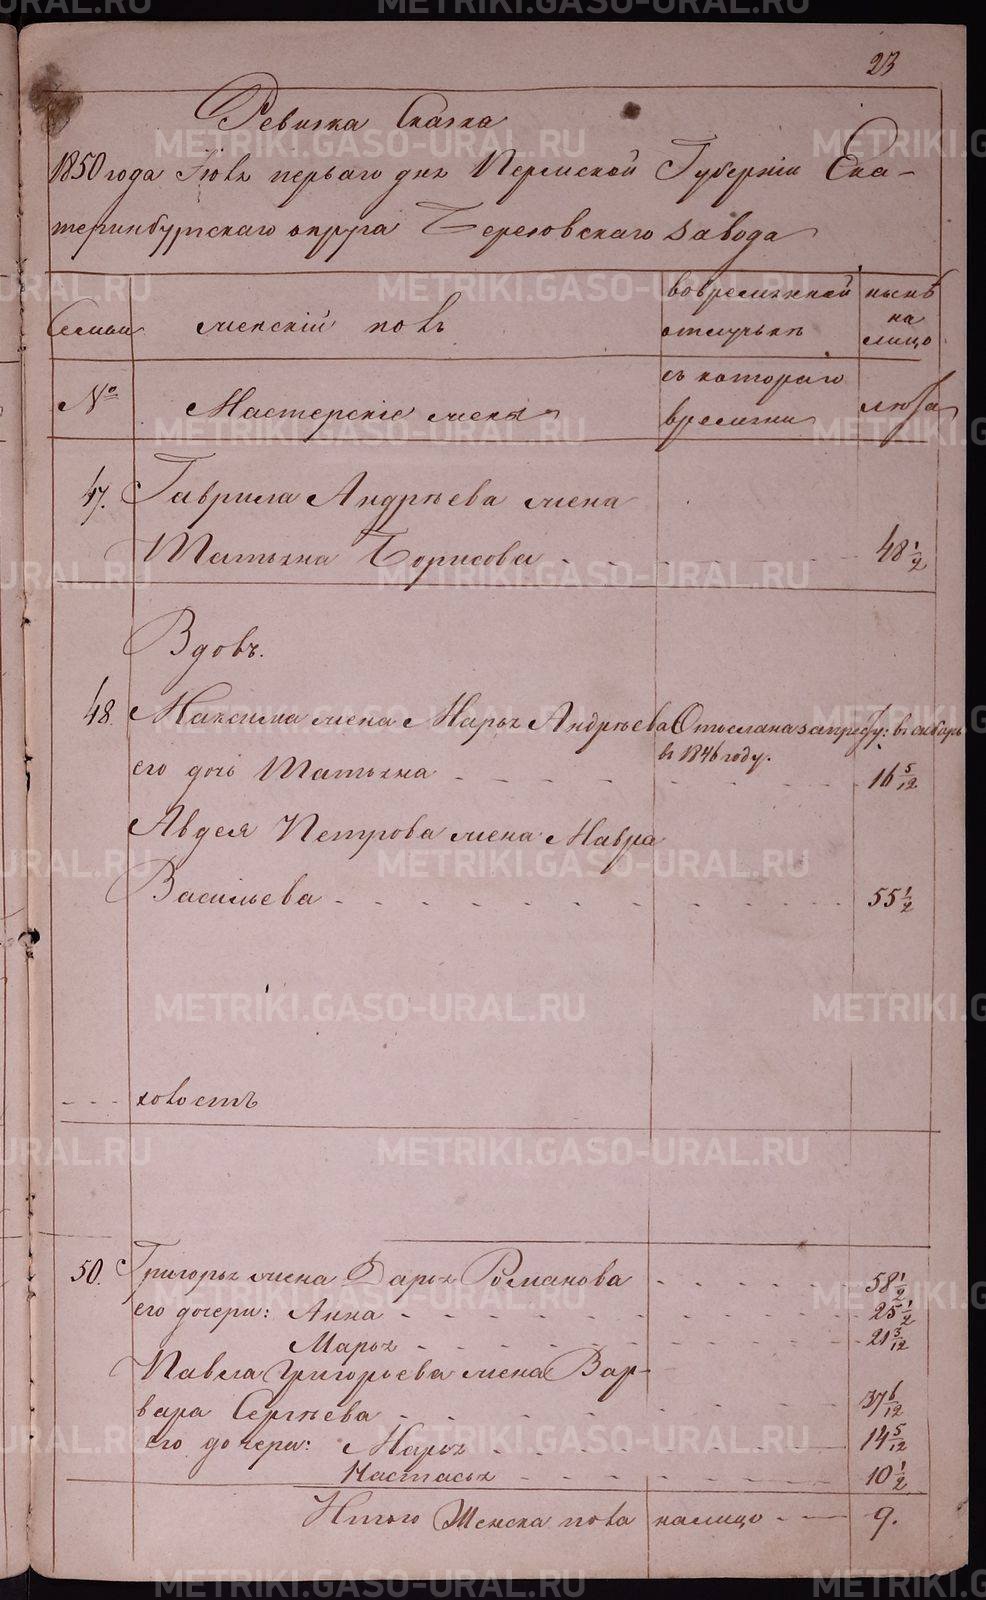 23
Ревизка Сказка
1850 года Июля перваго дня Пермской Губернiи Ека-
теринбургскаго округа Березовскаго завода
Семьи
женскiй полъ
во временной
отлучьке
нынѣ
на
лицо
№
Мастерскiе жены
съ котораго
времени
лѣта
47. Гаврила Андрѣева жена
Татьяна Борисова 48 1/2
Вдовъ.
48. Максима жена Марья Андрѣева Отослана в сибирь
в 1846 году.
его дочь Татьяна 16 5/12
Авдея Петрова жена Мавра
Васильева 55 1/2
холостъ
50. Григорья жена Дарья Романова 58 1/2
его дочери: Анна 25 1/2
Марья 21 3/12
Павла Григорьева жена Вар-
вара Сергѣева 37 6/12
его дочери: Марья 14 5/12
Настасья 10 1/2
Итого Женска пола налицо 9.
METRIKI.GASO-URAL.RU